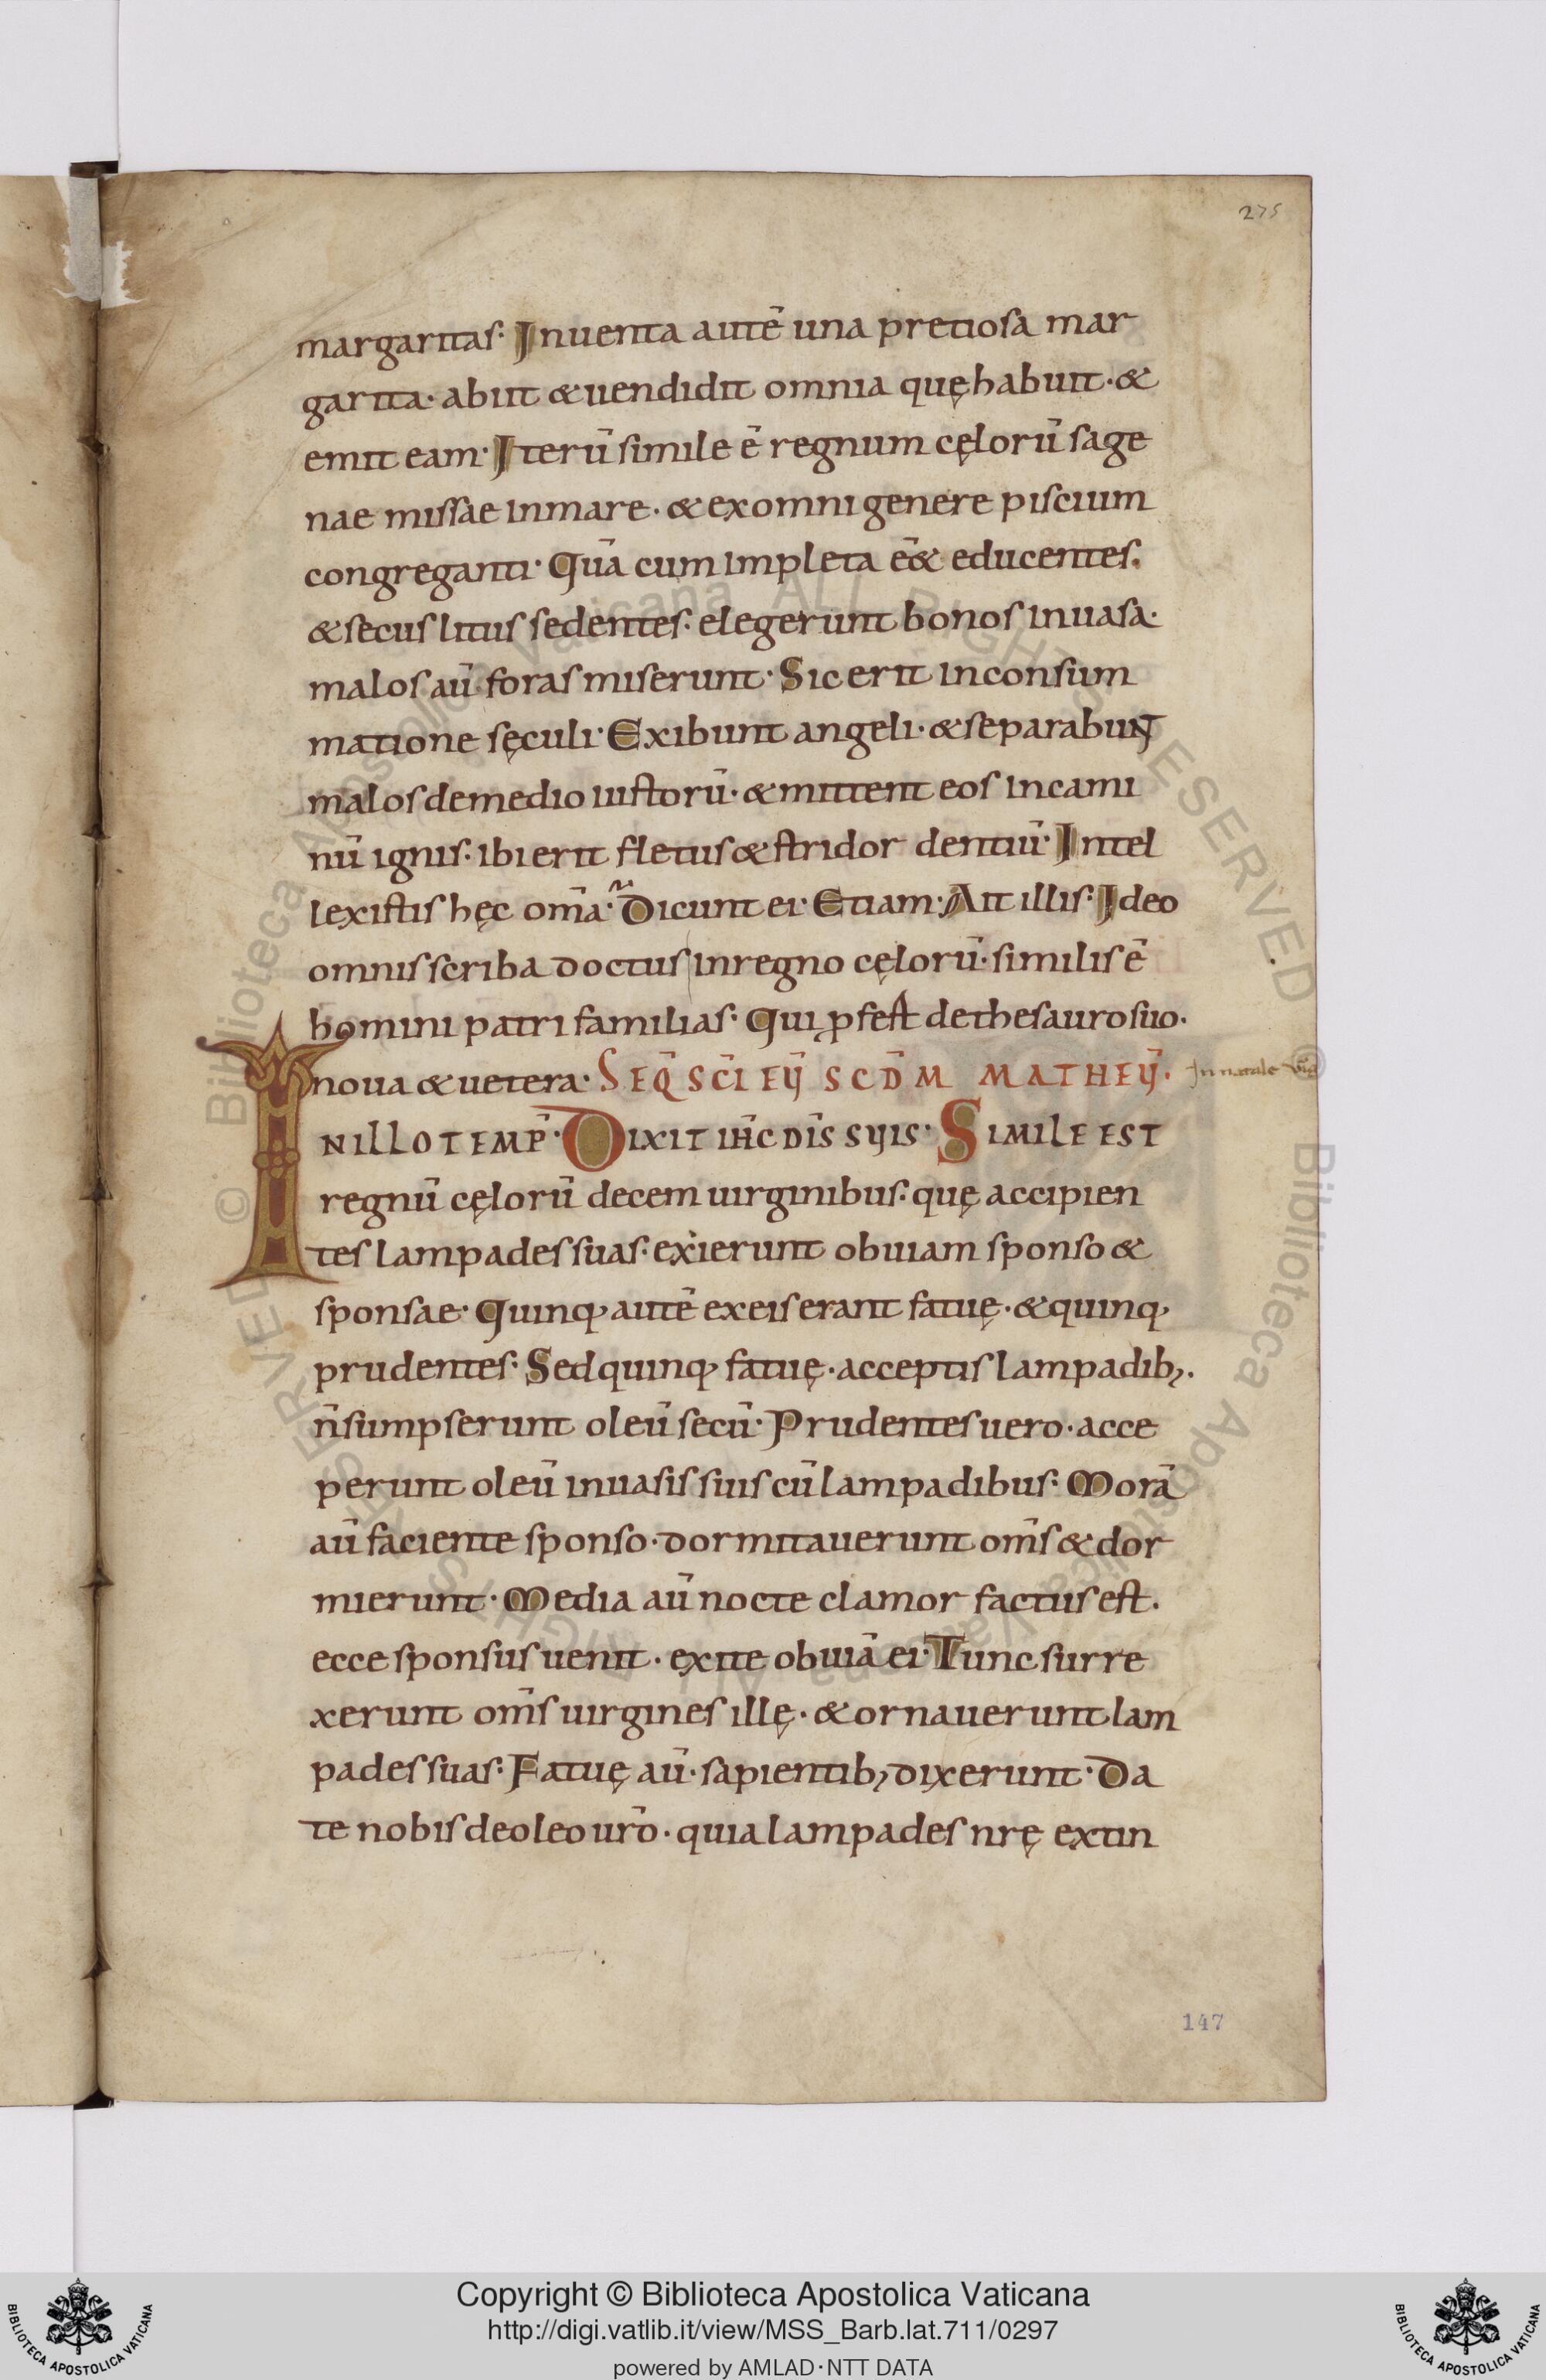 275
margaritas· Inuenta autē una pretiosa mar
garita· abiit & uendidit omnia quę habuit· &
emit eam· Iterū simile ē regnum cęlorū sage
nae missae in mare· & ex omni genere piscium
congreganti· Quā cum impleta eēt educentes.
& secus litus sedentes· elegerunt bonos in uasa·
malos aū foras miserunt· Sic erit in consum
matione sęculi· Exibunt angeli· & separabunt
malos de medio iustorū· & mittent eos in cami
nū ignis· ibi erit fletus & stridor dentiū· Intel
lexistis hęc om̄a· Dicunt ei· Etiam· Ait illis· Ideo
omnis scriba doctus in regno cęlorū· similis ē
homini patri familias· Qui ꝓfert de thesauro suo·
noua & uetera· SEQ̄ SC̄I EỸ SCD̄M MATHEỸ·
In natale
IN ILLO TEMP̄· DIXIT IH̄C DIS̄ SYIS· SIMILE EST
regnū cęlorū decem uirginibus· quę accipien
tes lampades suas· exierunt obuiam sponso &
sponsae· Quinq; autē ex eis erant fatuę· & quinq;
prudentes· Sed quinq; fatuę· acceptis lampadib;·
n̄ sumpserunt oleū secū· Prudentes uero· acce
perunt oleū in uasis suis cū lampadibus· Morā
aū faciente sponso· dormitauerunt om̄s & dor
mierunt· Media aū nocte clamor factus est·
ecce sponsus uenit· exite obuiā ei· Tunc surre
xerunt om̄s uirgines illę· & ornauerunt lam
pades suas· Fatuę aū· sapientib; dixerunt· Da
te nobis de oleo ur̄o· quia lampades nrę extin
147
Copyright © Biblioteca Apostolica Vaticana
http://digi.vatlib.it/view/MSS_Barb.lat.711/0297
powered by AMLAD·NTT DATA
BIBLIOTECA APOSTOLICA VATICANA
BIBLIOTECA APOSTOLICA VATICANA